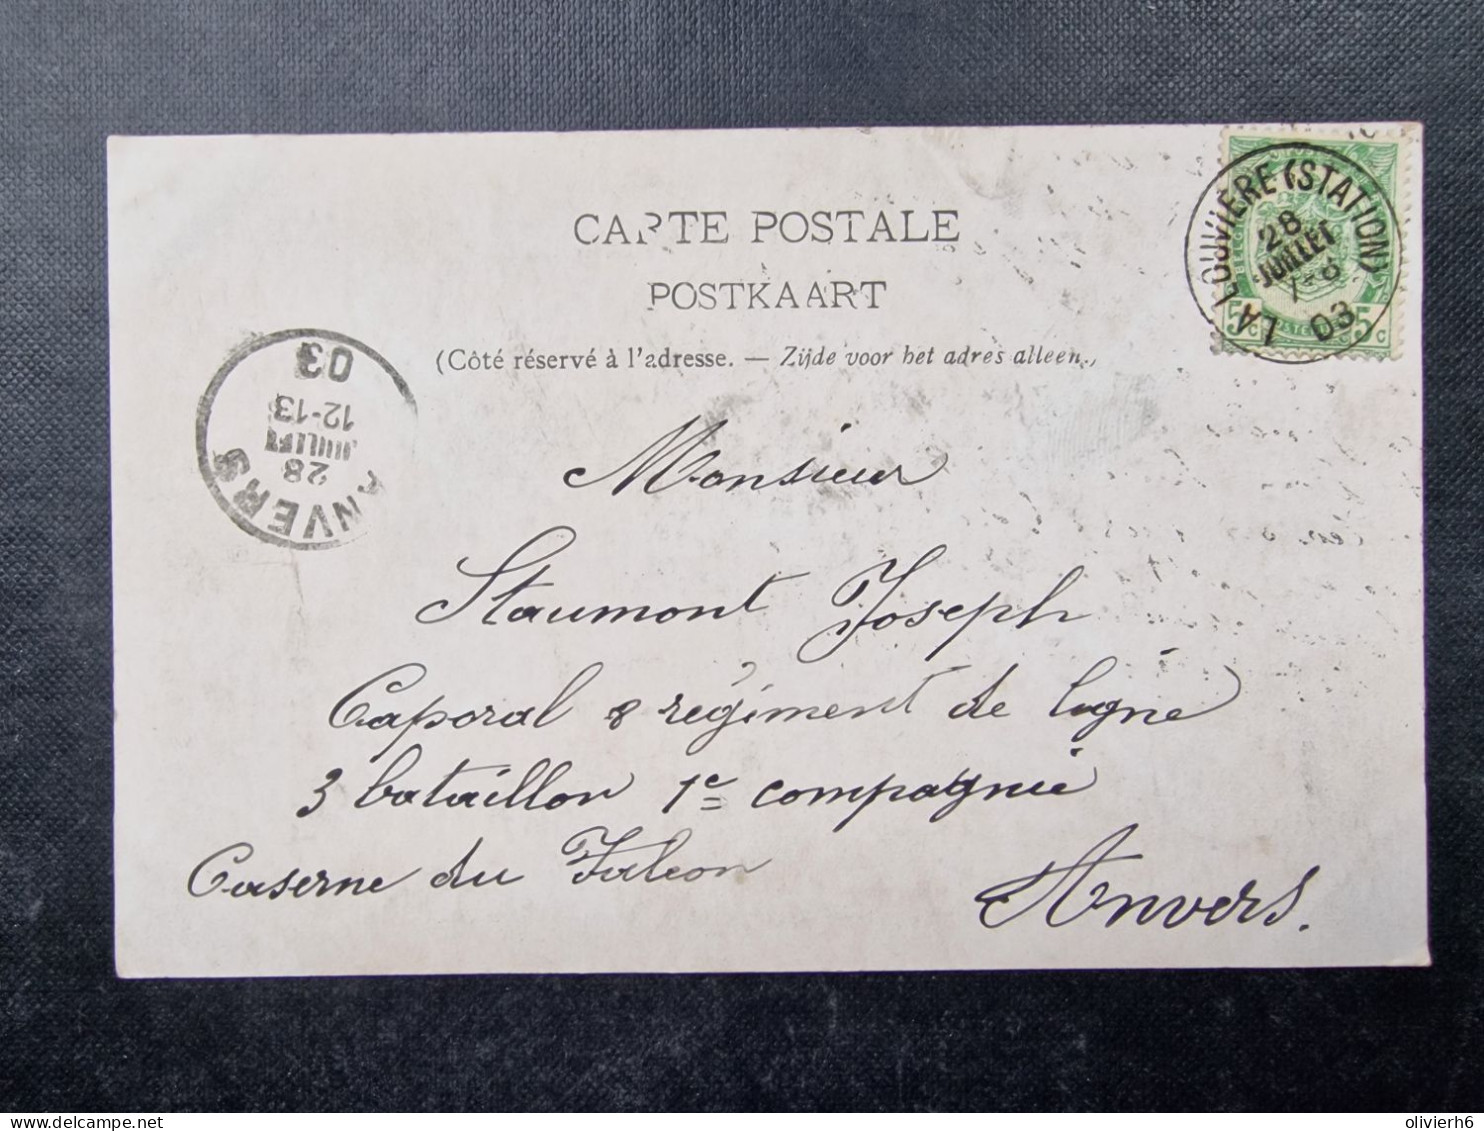 CARTE POSTALE
POSTKAART
(Côté réservé à l'adresse. — Zijde voor het adres alleen.)
LA LOUVIÈRE (STATION)
28
JUILLET
7-8
03
5c 5c
ANVERS
28
JUILLET
12-13
03
Monsieur
Staumont Joseph
Caporal 8 régiment de ligne
3 bataillon 1e compagnie
Caserne du Falcon
Anvers.
Delcampe.net
olivierh6